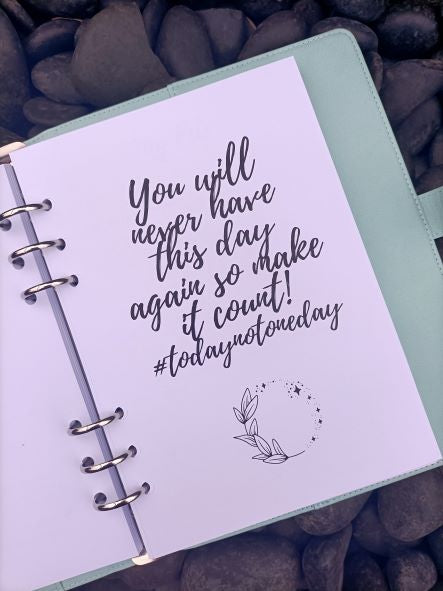 You will
never have
this day
again so make
it count!
#todaynotoneday